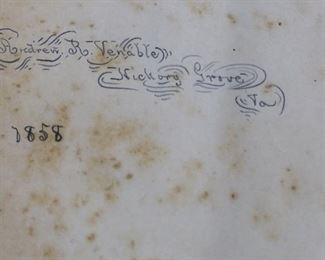 Andrew R. Venable
Hickory Grove
Va
1858